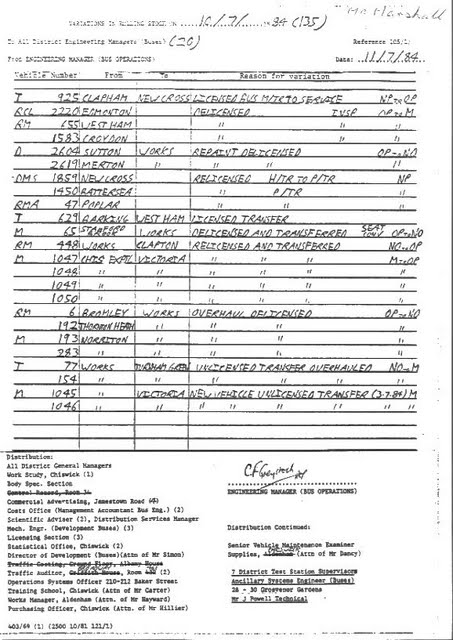 Mr Marshall
VARIATIONS IN ROLLING STOCK ON 10/7/84 (135)
To All District Engineering Managers (Buses) (20) Reference 105(1)
From ENGINEERING MANAGER (BUS OPERATIONS) Date: 11/7/84
Vehicle Number From To Reason for variation
T 925 CLAPHAM NEW CROSS LICENSED BUS M/TR TO SERVICE NP TO OP
RCL 2220 EDMONTON DELICENSED INSP OP TO M
RM 655 WEST HAM " " "
1583 CROYDON " " "
D 2604 SUTTON WORKS REPAINT DELICENSED OP-NO
2619 MERTON " " " "
DMS 1859 NEW CROSS RELICENSED H/TR TO P/TR NP
1450 BATTERSEA " P/TR "
RMA 47 POPLAR " " "
T 629 BARKING WEST HAM LICENSED TRANSFER
M 65 STAMFORD WORKS DELICENSED AND TRANSFERRED SEAT OP-NO
RM 448 WORKS CLAPTON RELICENSED AND TRANSFERRED NO-OP
M 1047 CHIS EXPTL VICTORIA " " " M TO OP
1048 " " " " " "
1049 " " " " " "
1050 " " " " " "
RM 6 BROMLEY WORKS OVERHAUL DELICENSED OP-NO
192 THORNTON HEATH " " " "
M 193 NORBITON " " " "
283 " " " " "
T 77 WORKS TURNHAM GREEN UNLICENSED TRANSFER OVERHAULED NO-M
154 " " " " " "
M 1045 " VICTORIA NEW VEHICLE UNLICENSED TRANSFER (3.7.84) M
1046 " " " " " " " "
Distribution:
All District General Managers
Work Study, Chiswick (1)
Body Spec. Section
General Record, Room 34
Commercial Advertising, Jamestown Road
Costs Office (Management Accountant Bus Eng.) (2)
Scientific Adviser (2), Distribution Services Manager
Mech. Engr. (Development Buses) (3)
Licensing Section (3)
Statistical Office, Chiswick (2)
Director of Development (Buses)(Attn of Mr Simon)
Traffic Costing, Ground Floor, Albany House
Traffic Auditor, Griffith House, Room
Operations Systems Officer 210-212 Baker Street
Training School, Chiswick (Attn of Mr Carter)
Works Manager, Aldenham (Attn of Mr Hayward)
Purchasing Officer, Chiswick (Attn of Mr Hillier)
403/69 (1) (2500 10/81 121/1)
ENGINEERING MANAGER (BUS OPERATIONS)
Distribution Continued:
Senior Vehicle Maintenance Examiner
Supplies, Aldenham (Attn of Mr Dancy)
7 District Test Station Supervisors
Ancillary Systems Engineer (Buses)
28 - 30 Grosvenor Gardens
Mr J Powell Technical